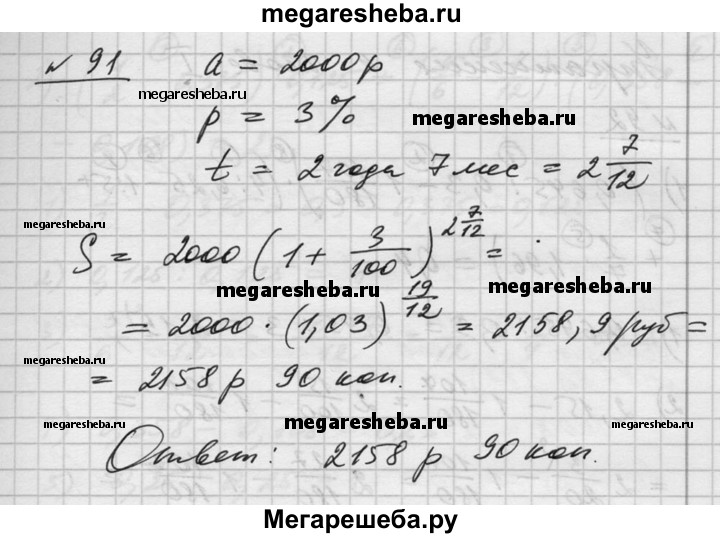 megaresheba.ru
№ 91 a = 2000 р
megaresheba.ru
p = 3 % megaresheba.ru
t = 2 года 7 мес = 2 7/12
megaresheba.ru
S = 2000 (1 + 3/100)^2 7/12 =
megaresheba.ru megaresheba.ru
= 2000 · (1,03)^19/12 = 2158,9 руб =
megaresheba.ru
= 2158 р 90 коп.
megaresheba.ru megaresheba.ru megaresheba.ru
Ответ: 2158 р 90 коп.
Мегарешеба.ру